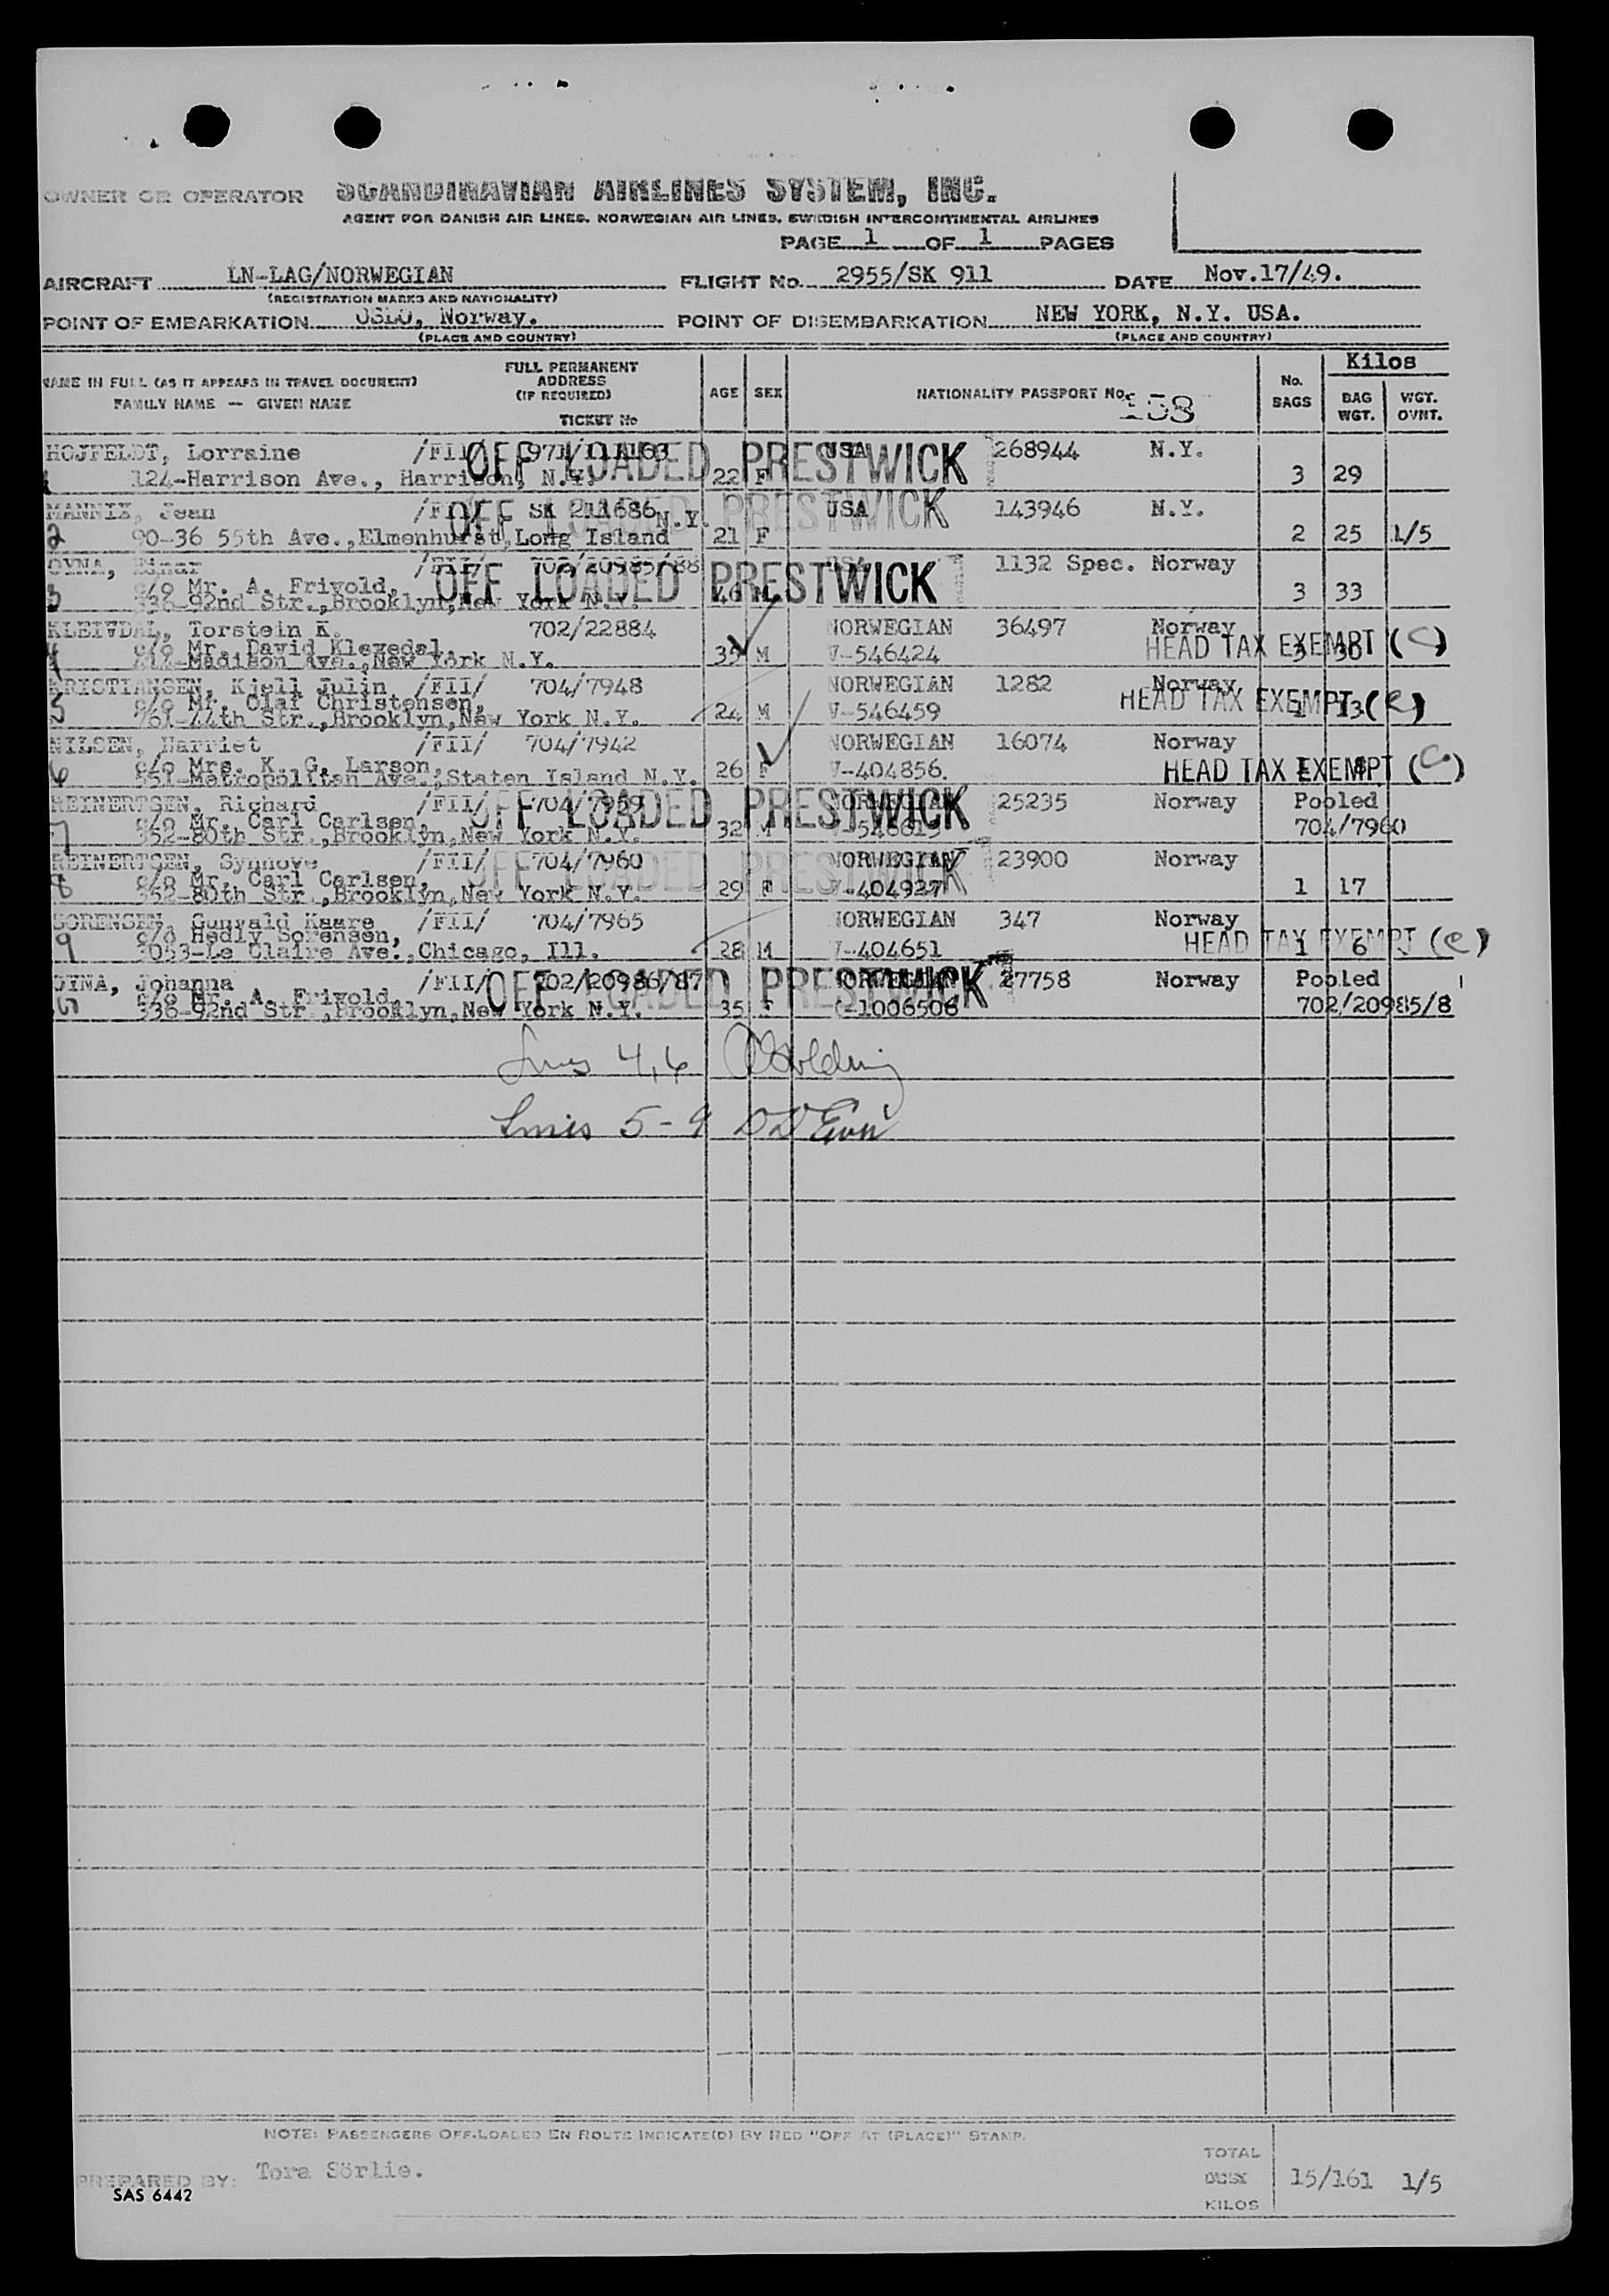 OWNER OR OPERATOR SCANDINAVIAN AIRLINES SYSTEM, INC.
AGENT FOR DANISH AIR LINES, NORWEGIAN AIR LINES, SWEDISH INTERCONTINENTAL AIRLINES
PAGE 1 OF 1 PAGES
AIRCRAFT LN-LAG/NORWEGIAN FLIGHT No. 2955/SK 911 DATE Nov.17/49.
(REGISTRATION MARKS AND NATIONALITY)
POINT OF EMBARKATION OSLO, Norway. POINT OF DISEMBARKATION NEW YORK, N.Y. USA.
(PLACE AND COUNTRY) (PLACE AND COUNTRY)
NAME IN FULL (AS IT APPEARS IN TRAVEL DOCUMENT)
FAMILY NAME — GIVEN NAME
FULL PERMANENT
ADDRESS
(IF REQUIRED)
TICKET No
AGE SEX NATIONALITY PASSPORT No. 158
No.
BAGS
Kilos
BAG
WGT.
WGT.
OVNT.
HOJFELDT, Lorraine /FII/ USA 268944 N.Y.
OFF LOADED PRESTWICK
1 124-Harrison Ave., Harrison, N.Y. 22 F 3 29
MANNIX, Jean /FII/ SK 211686 USA 143946 N.Y.
OFF LOADED PRESTWICK
2 90-36 55th Ave.,Elmenhurst,Long Island N.Y. 21 F 2 25 1/5
OYNA, Einar /FII/ 702/20985/88 USA 1132 Spec. Norway
OFF LOADED PRESTWICK
3 c/o Mr. A. Frivold,
336-92nd Str.,Brooklyn,New York N.Y. 46 3 33
KLEIVDAL, Torstein K. 702/22884 NORWEGIAN 36497 Norway
4 c/o Mr. David Klevedal,
Madison Ave.,New York N.Y. 35 M V-546424 3 30
HEAD TAX EXEMPT (C)
KRISTIANSEN, Kjell Julin /FII/ 704/7948 NORWEGIAN 1282 Norway
5 c/o Mr. Olaf Christensen,
761-44th Str.,Brooklyn,New York N.Y. 24 M V-546459 1 13
HEAD TAX EXEMPT (C)
NILSEN, Harriet /FII/ 704/7942 NORWEGIAN 16074 Norway
6 c/o Mrs. K. G. Larson,
551-Metropolitan Ave.,Staten Island N.Y. 26 F V-404856. 1
HEAD TAX EXEMPT (C)
REINERTSEN, Richard /FII/ 704/7959 NORWEGIAN 25235 Norway Pooled
OFF LOADED PRESTWICK
7 c/o Mr. Carl Carlsen,
352-80th Str.,Brooklyn,New York N.Y. 32 M 704/7960
REINERTSEN, Synnove /FII/ 704/7960 NORWEGIAN 23900 Norway
OFF LOADED PRESTWICK
8 c/o Mr. Carl Carlsen,
352-80th Str.,Brooklyn,New York N.Y. 29 F V-404927 1 17
SORENSEN, Gunvald Kaare /FII/ 704/7965 NORWEGIAN 347 Norway
9 c/o Hedly Sorensen,
3053-Le Claire Ave.,Chicago, Ill. 28 M V-404651 1 6
HEAD TAX EXEMPT (C)
OYNA, Johanna /FII/ 702/20986/87 NORWEGIAN 27758 Norway Pooled
OFF LOADED PRESTWICK
10 c/o Mr. A. Frivold,
336-92nd Str.,Brooklyn,New York N.Y. 35 F 1006506 702/20985/8
Lines 4,6
Lines 5-9
NOTE: PASSENGERS OFF-LOADED EN ROUTE INDICATE(D) BY RED "OFF AT (PLACE)" STAMP.
PREPARED BY: Tora Sörlie.
SAS 6442
TOTAL
KILOS
15/161 1/5